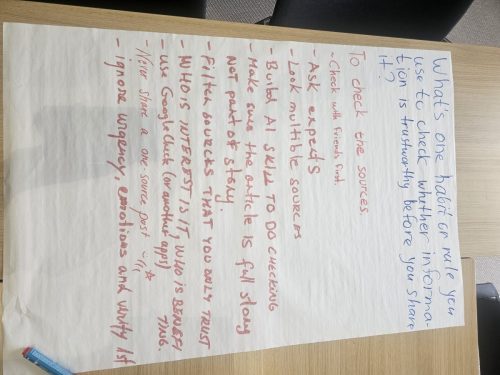 What's one habit or rule you
use to check whether informa-
tion is trustworthy before you share
it?
To check the sources.
- Check with friends first.
- Ask experts
- Look multiple sources
- Build AI skill to do checking
- Make sure the article is full story
Not part of story.
- Filter sources that you only trust
- Who is interest is it who is benefi
ting.
- Use Google check (or another apps)
- Never share a one source post
- ignore urgency, emotions and verify 1st